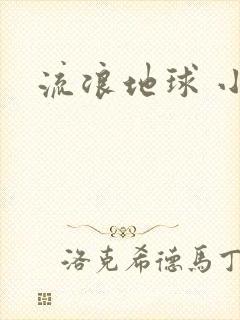 流浪地球 小
洛克希德馬丁